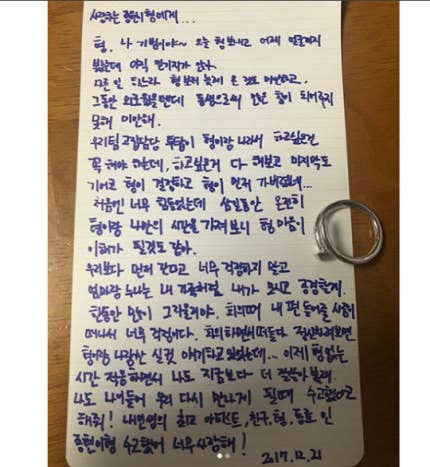 사랑하는 종현이 형에게...
형. 나 기범이야~ 오늘 형 보내고 어제 얼굴까지
봤는데 아직 믿기지가 않아.
형 보러 늦게 온 것도 미안하고,
그동안 외로웠을텐데 동생으로써 많은 힘이 되어주지
못해 미안해.
우리팀 고집담당 투탑이 형이랑 나라서 하고싶은건
꼭 해야 했는데, 하고싶은거 다 해보고 마지막도
기어코 형이 결정하고 형이 먼저 가버렸네...
처음엔 너무 힘들었는데 삼일동안 온전히
형이랑 나만의 시간을 가져보니 형 마음이
이해가 될것도 같아.
우리보다 먼저 간다고 너무 걱정하지 말고
엄마랑 누나는 내 가족처럼 내가 모시고 공경할게.
한동안 많이 그리울거야. 회의때 내 편 들어줄 사람이
떠나서 너무 걱정이다. 회의하면서 떠들다 정신차려보면
형이랑 나랑만 실컷 얘기하고 있었는데... 이제 형 없는
시간 적응하면서 나도 지금보다 더 잘 살아볼게.
나도 나이들어 우리 다시 만나게 될때 수고했다고
해줘! 내 인생의 최고 아티스트, 친구, 형, 동료 인
종현이형 수고했어 너무 사랑해!
2017.12.21